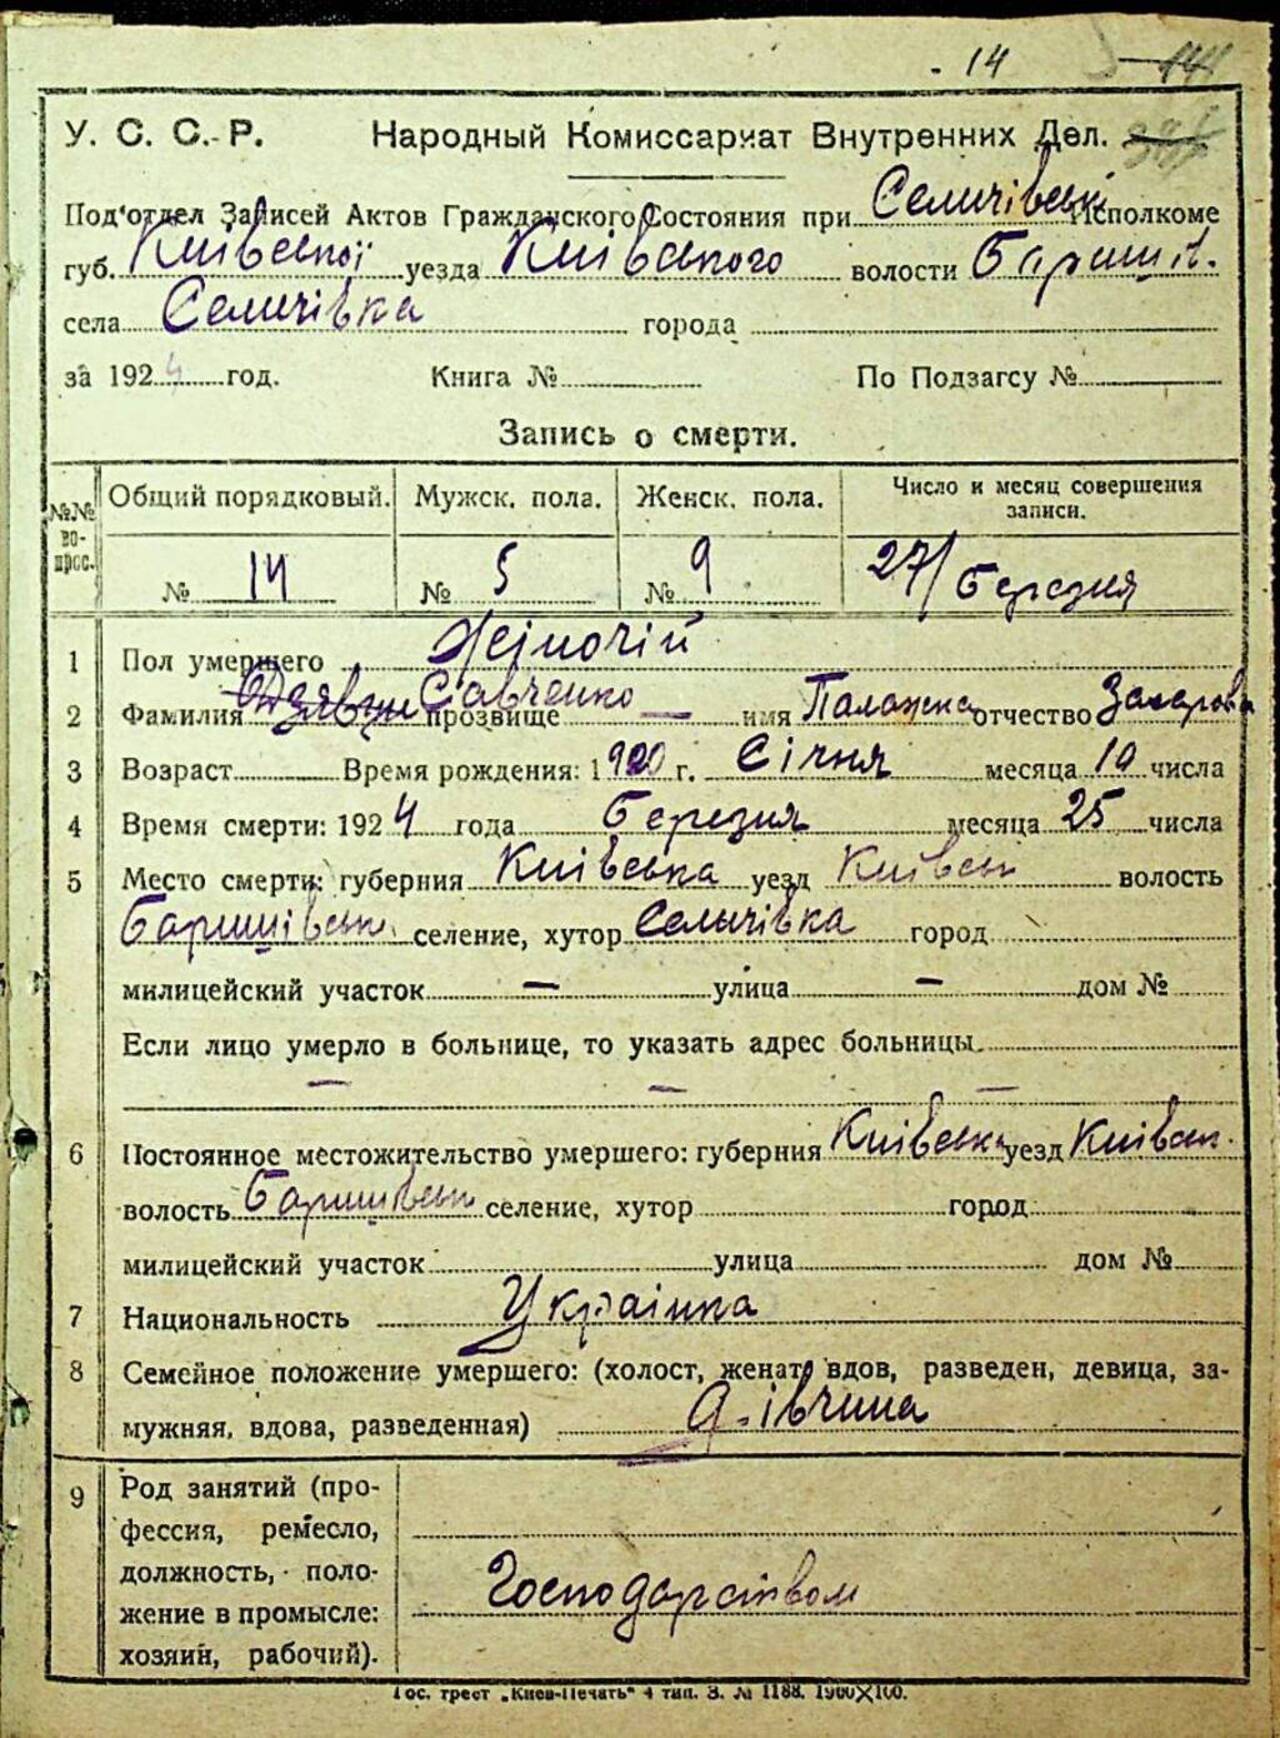 . 14 144
У. С. С. Р. Народный Комиссариат Внутренних Дел.
Под'отдел Записей Актов Гражданского Состояния при Селичівськ Исполкоме
губ. Київської уезда Київського волости Баришів.
села Селичівка города
за 1924 год. Книга № По Подзагсу №
Запись о смерти.
№№ во-прос. Общий порядковый. Мужск. пола. Женск. пола. Число и месяц совершения записи.
№ 14 № 5 № 9 27/Березня
1 Пол умершего Жіночій
2 Фамилия Савченко прозвище — имя Палажка отчество Захарова
3 Возраст Время рождения: 1920 г. Січня месяца 10 числа
4 Время смерти: 1924 года Березня месяца 25 числа
5 Место смерти: губерния Київська уезд Київськ волость
Баришівськ. селение, хутор Селичівка город
милицейский участок — улица — дом №
Если лицо умерло в больнице, то указать адрес больницы
— — —
6 Постоянное местожительство умершего: губерния Київська уезд Київськ.
волость Баришівськ селение, хутор город
милицейский участок улица дом №
7 Национальность Українка
8 Семейное положение умершего: (холост, женат, вдов, разведен, девица, за-
мужняя, вдова, разведенная) Дівчина
9 Род занятий (про-
фессия, ремесло,
должность, поло-
жение в промысле: Господарством
хозяин, рабочий).
Гос. трест „Киев-Печать" 4 тип. З. № 1188. 1900×100.